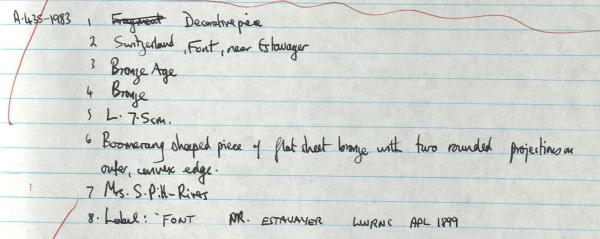 A.435-1983 1 Fragment Decorative piece
2 Switzerland, Font, near Estavayer
3 Bronze Age
4 Bronze
5 L. 7.5cm.
6 Boomerang shaped piece of flat sheet bronze with two rounded projections on
outer, convex edge.
7 Mrs. S. Pitt-Rivers
8. Label: "FONT NR. ESTAVAYER LWRNS APL 1899